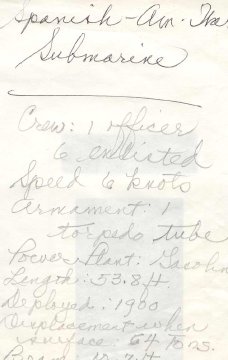 Spanish-Am.
Submarine
Crew: 1 officer
6 enlisted
Speed 6 knots
Armament: 1
torpedo tube
Power Plant:
Length: 53.8 ft
Deployed: 1900
Displacement when
surface: 64 tons.
Beam 10.2 ft